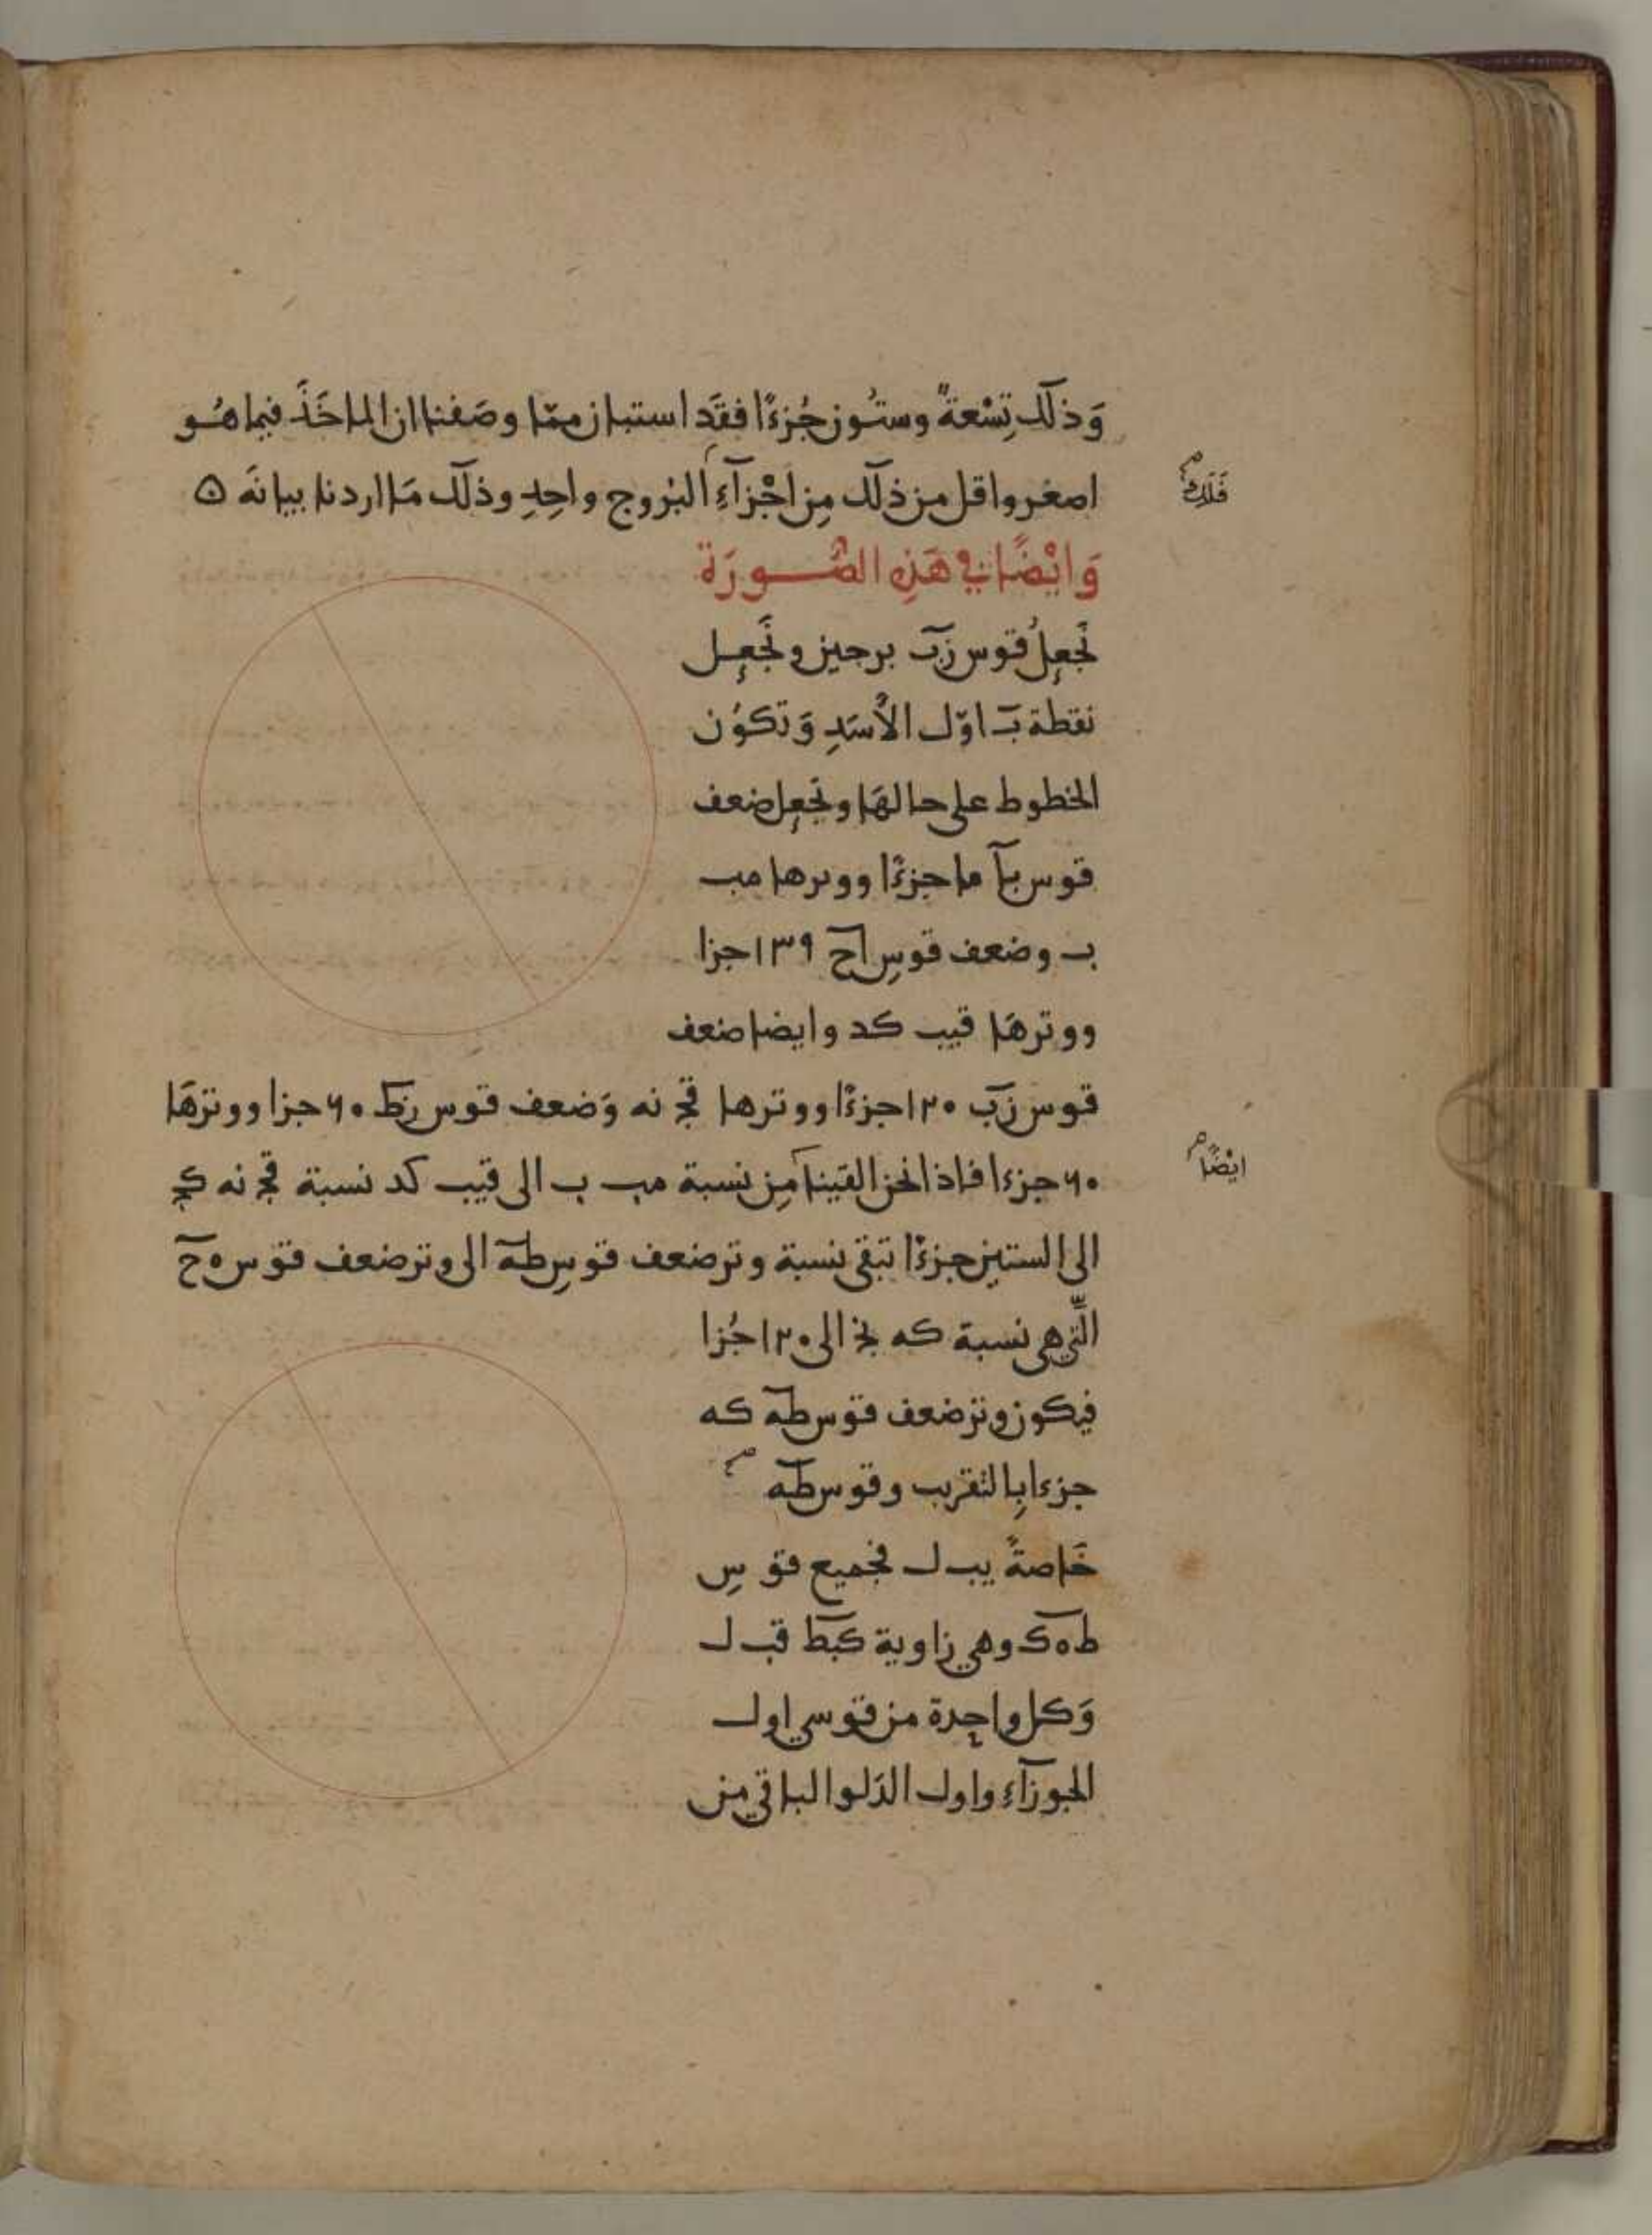 وَذلَك تِسْعةٌ وستُون جُزءًا فقَد استبان ممّا وصَفنا ان الماخَذَ فيما هُو
اصغر واقل من ذلَك مِن اجْزآءِ البُروج واحِدِ وذلَك مَا اردنا بيانَه ه
فَلَك
وَايْضًا في هَذِه الصُّورَة
نَجعِلُ قوس زب برجين ونَجعِل
نقطة ب اوّل الأسَدِ وَتكوُن
الخطوط على حالهَا ونجعِل ضعف
قوس با ما جزءًا ووترها مب
ب وضعف قوسِ اح ١٣٩ جزا
ووترهَا قيب كد وايضا ضعف
قوس زب ١٢٠ جزءًا ووترها قج نه وَضعف قوس زط ٦٠ جزا ووترهَا
٦٠ جزءا فاذا نحن القينا مِن نسبة مب ب الى قيب كد نسبة قج نه كج
ايْضًا
الى الستين جزءًا تبقى نسبة وتر ضعف قوسِ طه الى وتر ضعف قوس ه ح
الَّتي هي نسبة كه نج الى ١٢٠ جُزا
فيكون وتر ضعف قوس طه كه
جزءا بِالتقريب وقوس طه
خَاصةً يب ل فجميع قوسِ
ط ه ك وهي زاوية كبط قب ل
وَكل واحِدة من قوسي اول
الجوزآءِ واول الدَلو الباقي من